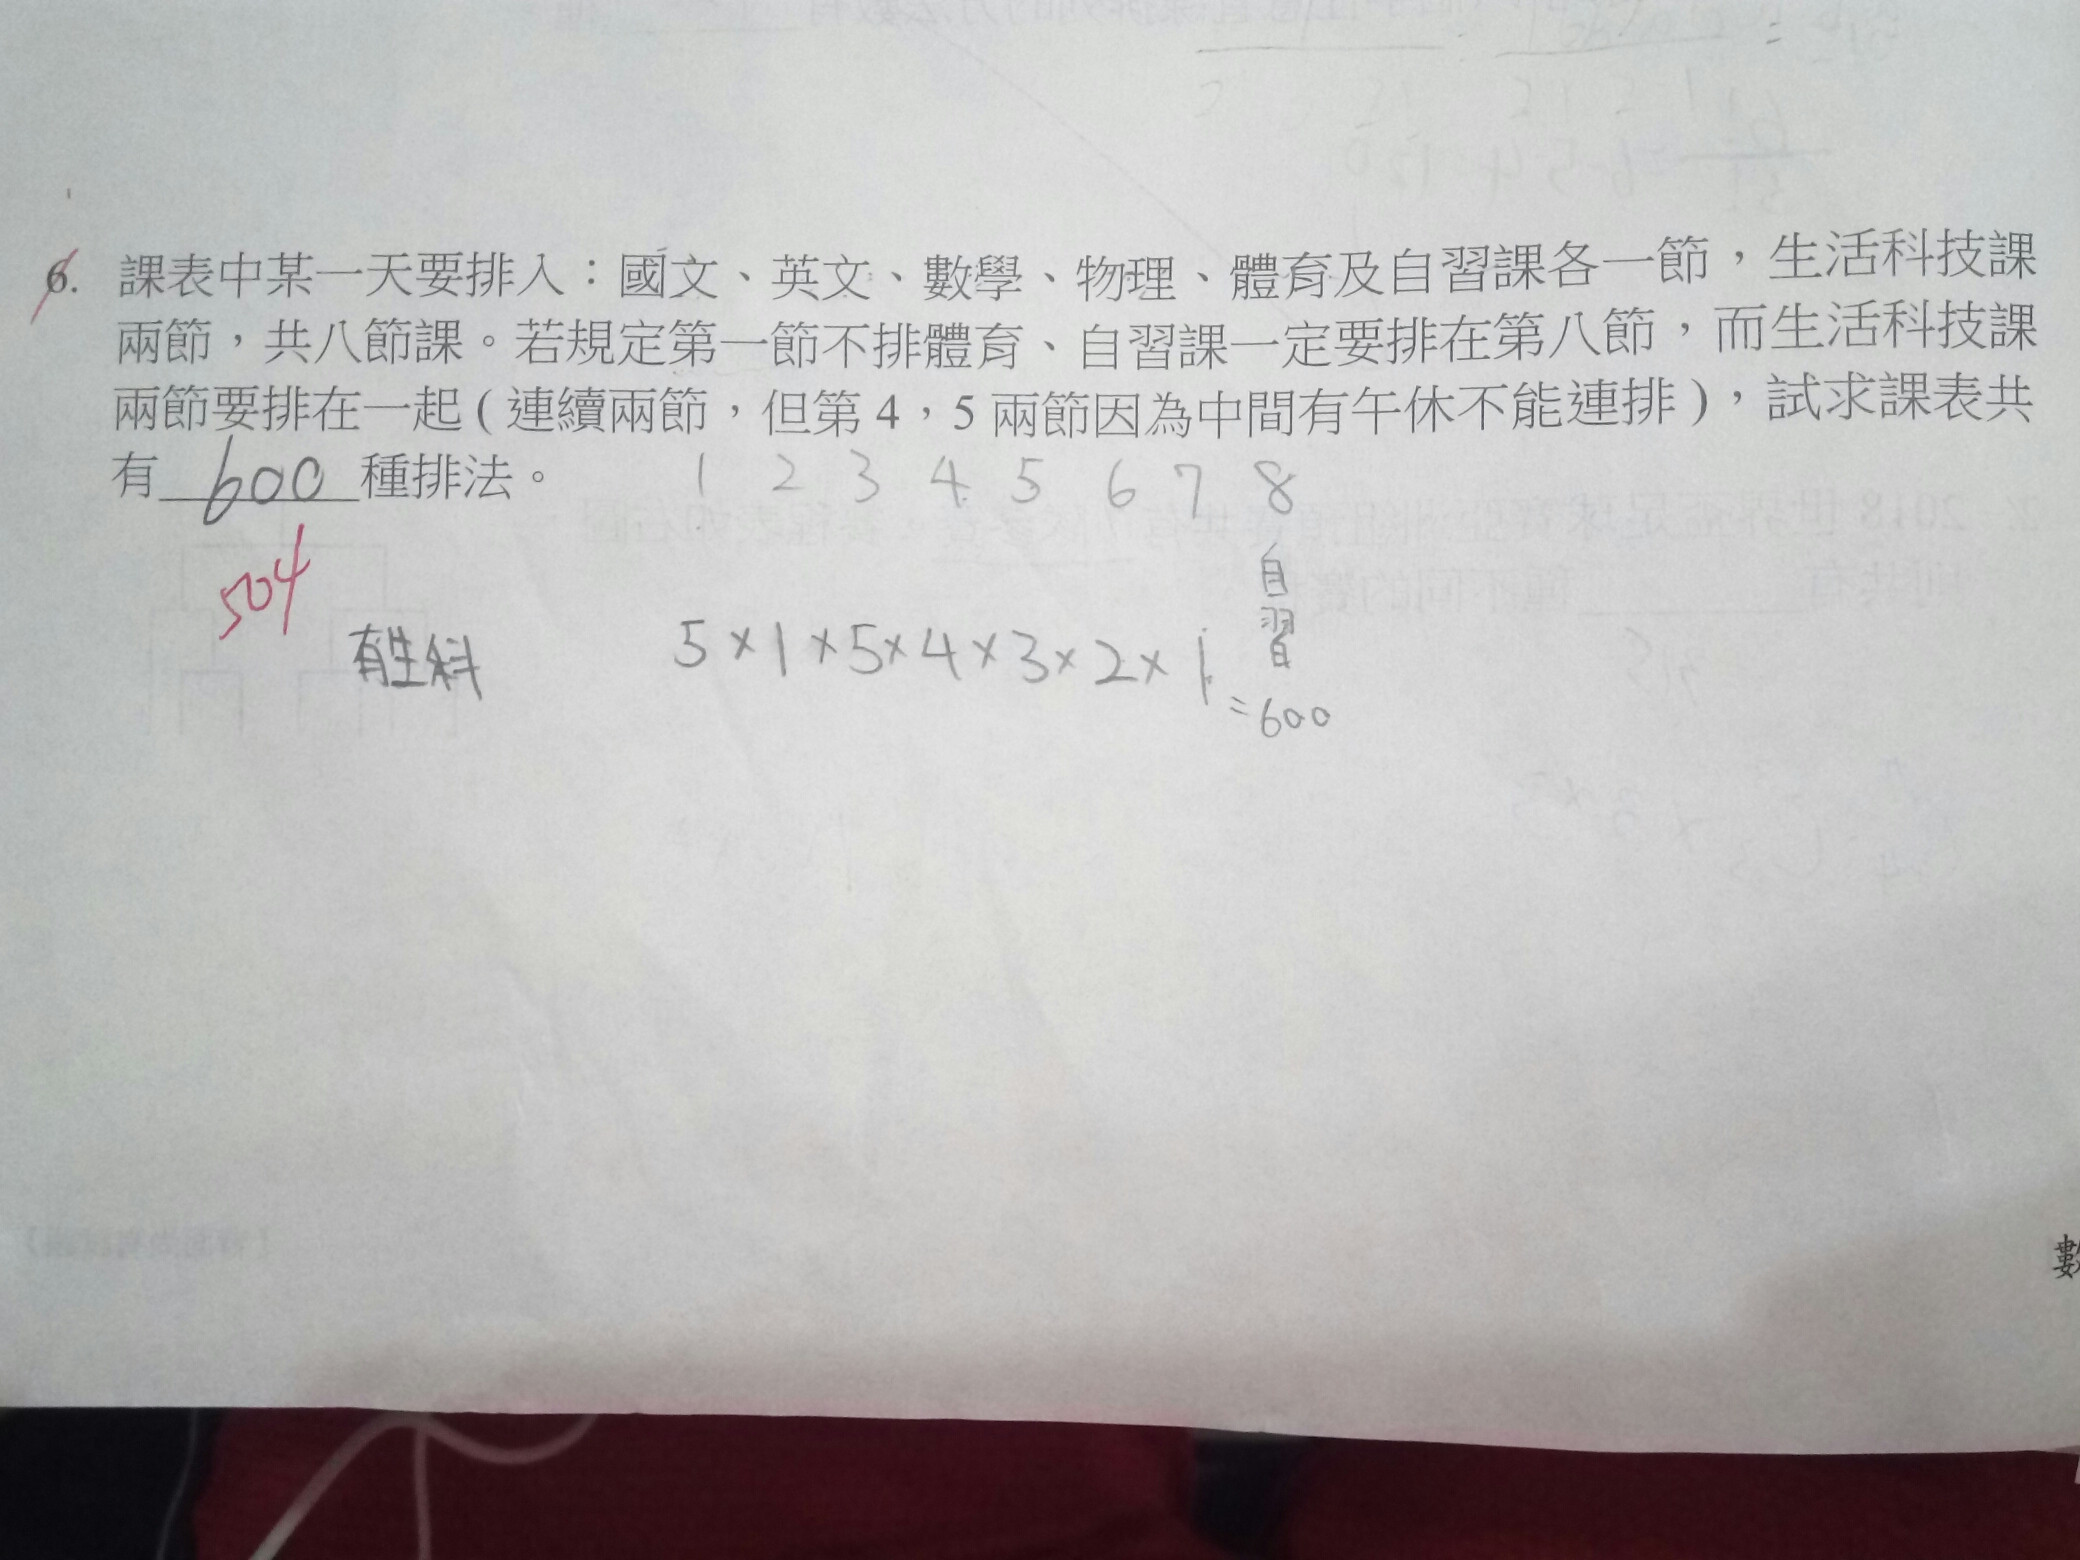 6. 課表中某一天要排入：國文、英文、數學、物理、體育及自習課各一節，生活科技課
兩節，共八節課。若規定第一節不排體育、自習課一定要排在第八節，而生活科技課
兩節要排在一起(連續兩節，但第4，5兩節因為中間有午休不能連排)，試求課表共
有 600 種排法。
1 2 3 4 5 6 7 8
504
自習
有生科
5×1×5×4×3×2×1
=600
數